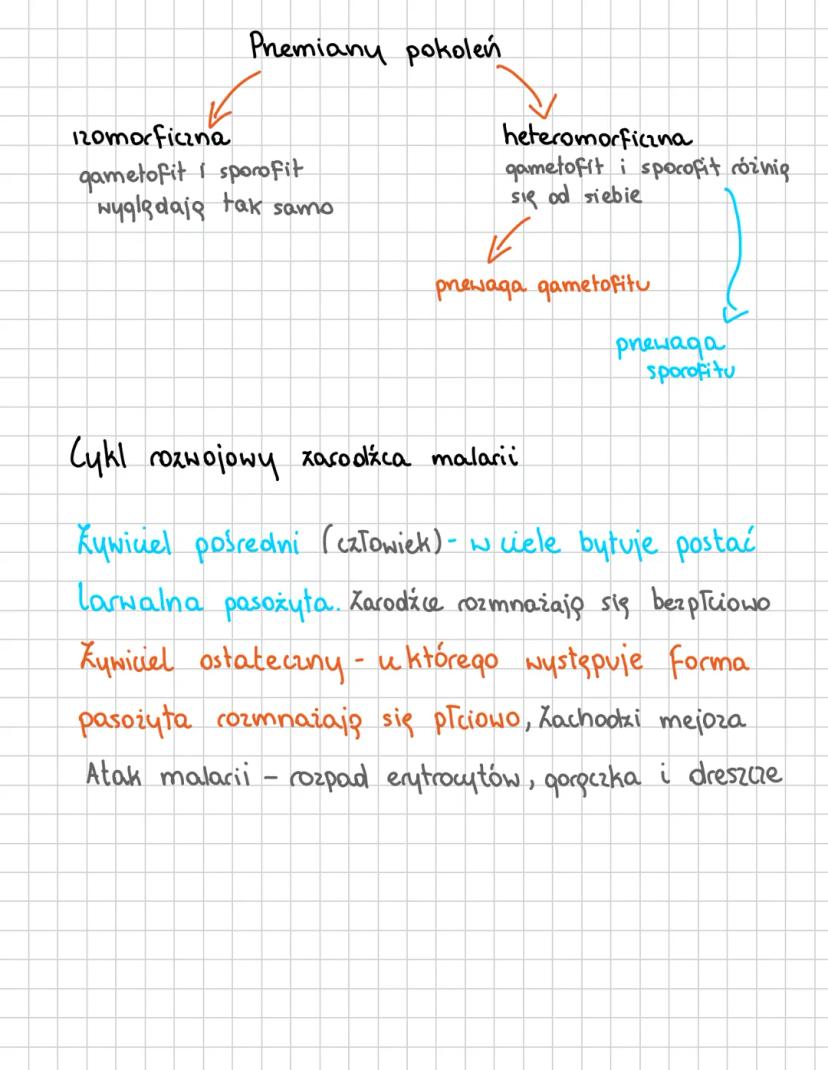 Przemiany pokoleń
izomorficzna
gametofit i sporofit
wyglądają tak samo
heteromorficzna
gametofit i sporofit różnią
się od siebie
przewaga gametofitu
przewaga
sporofitu
Cykl rozwojowy zarodźca malarii
Żywiciel pośredni (człowiek) - w ciele bytuje postać
larwalna pasożyta. Zarodźce rozmnażają się bezpłciowo
Żywiciel ostateczny - u którego występuje forma
pasożyta rozmnażają się płciowo, Zachodzi mejoza
Atak malarii - rozpad erytrocytów, gorączka i dreszcze